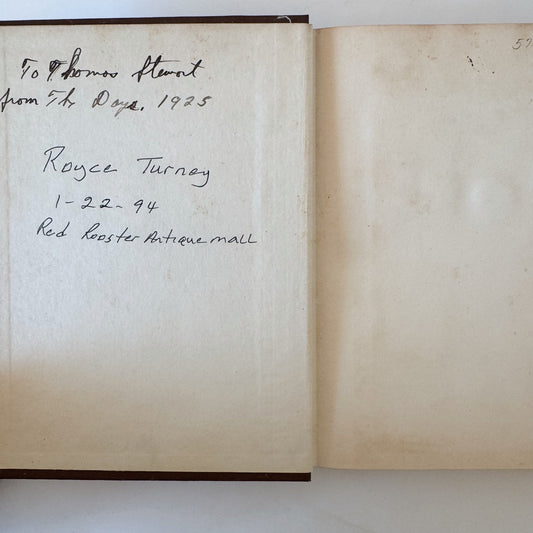 To Thomas Stewart
from The Days. 1925
Royce Turney
1-22-94
Red Rooster Antique mall
57